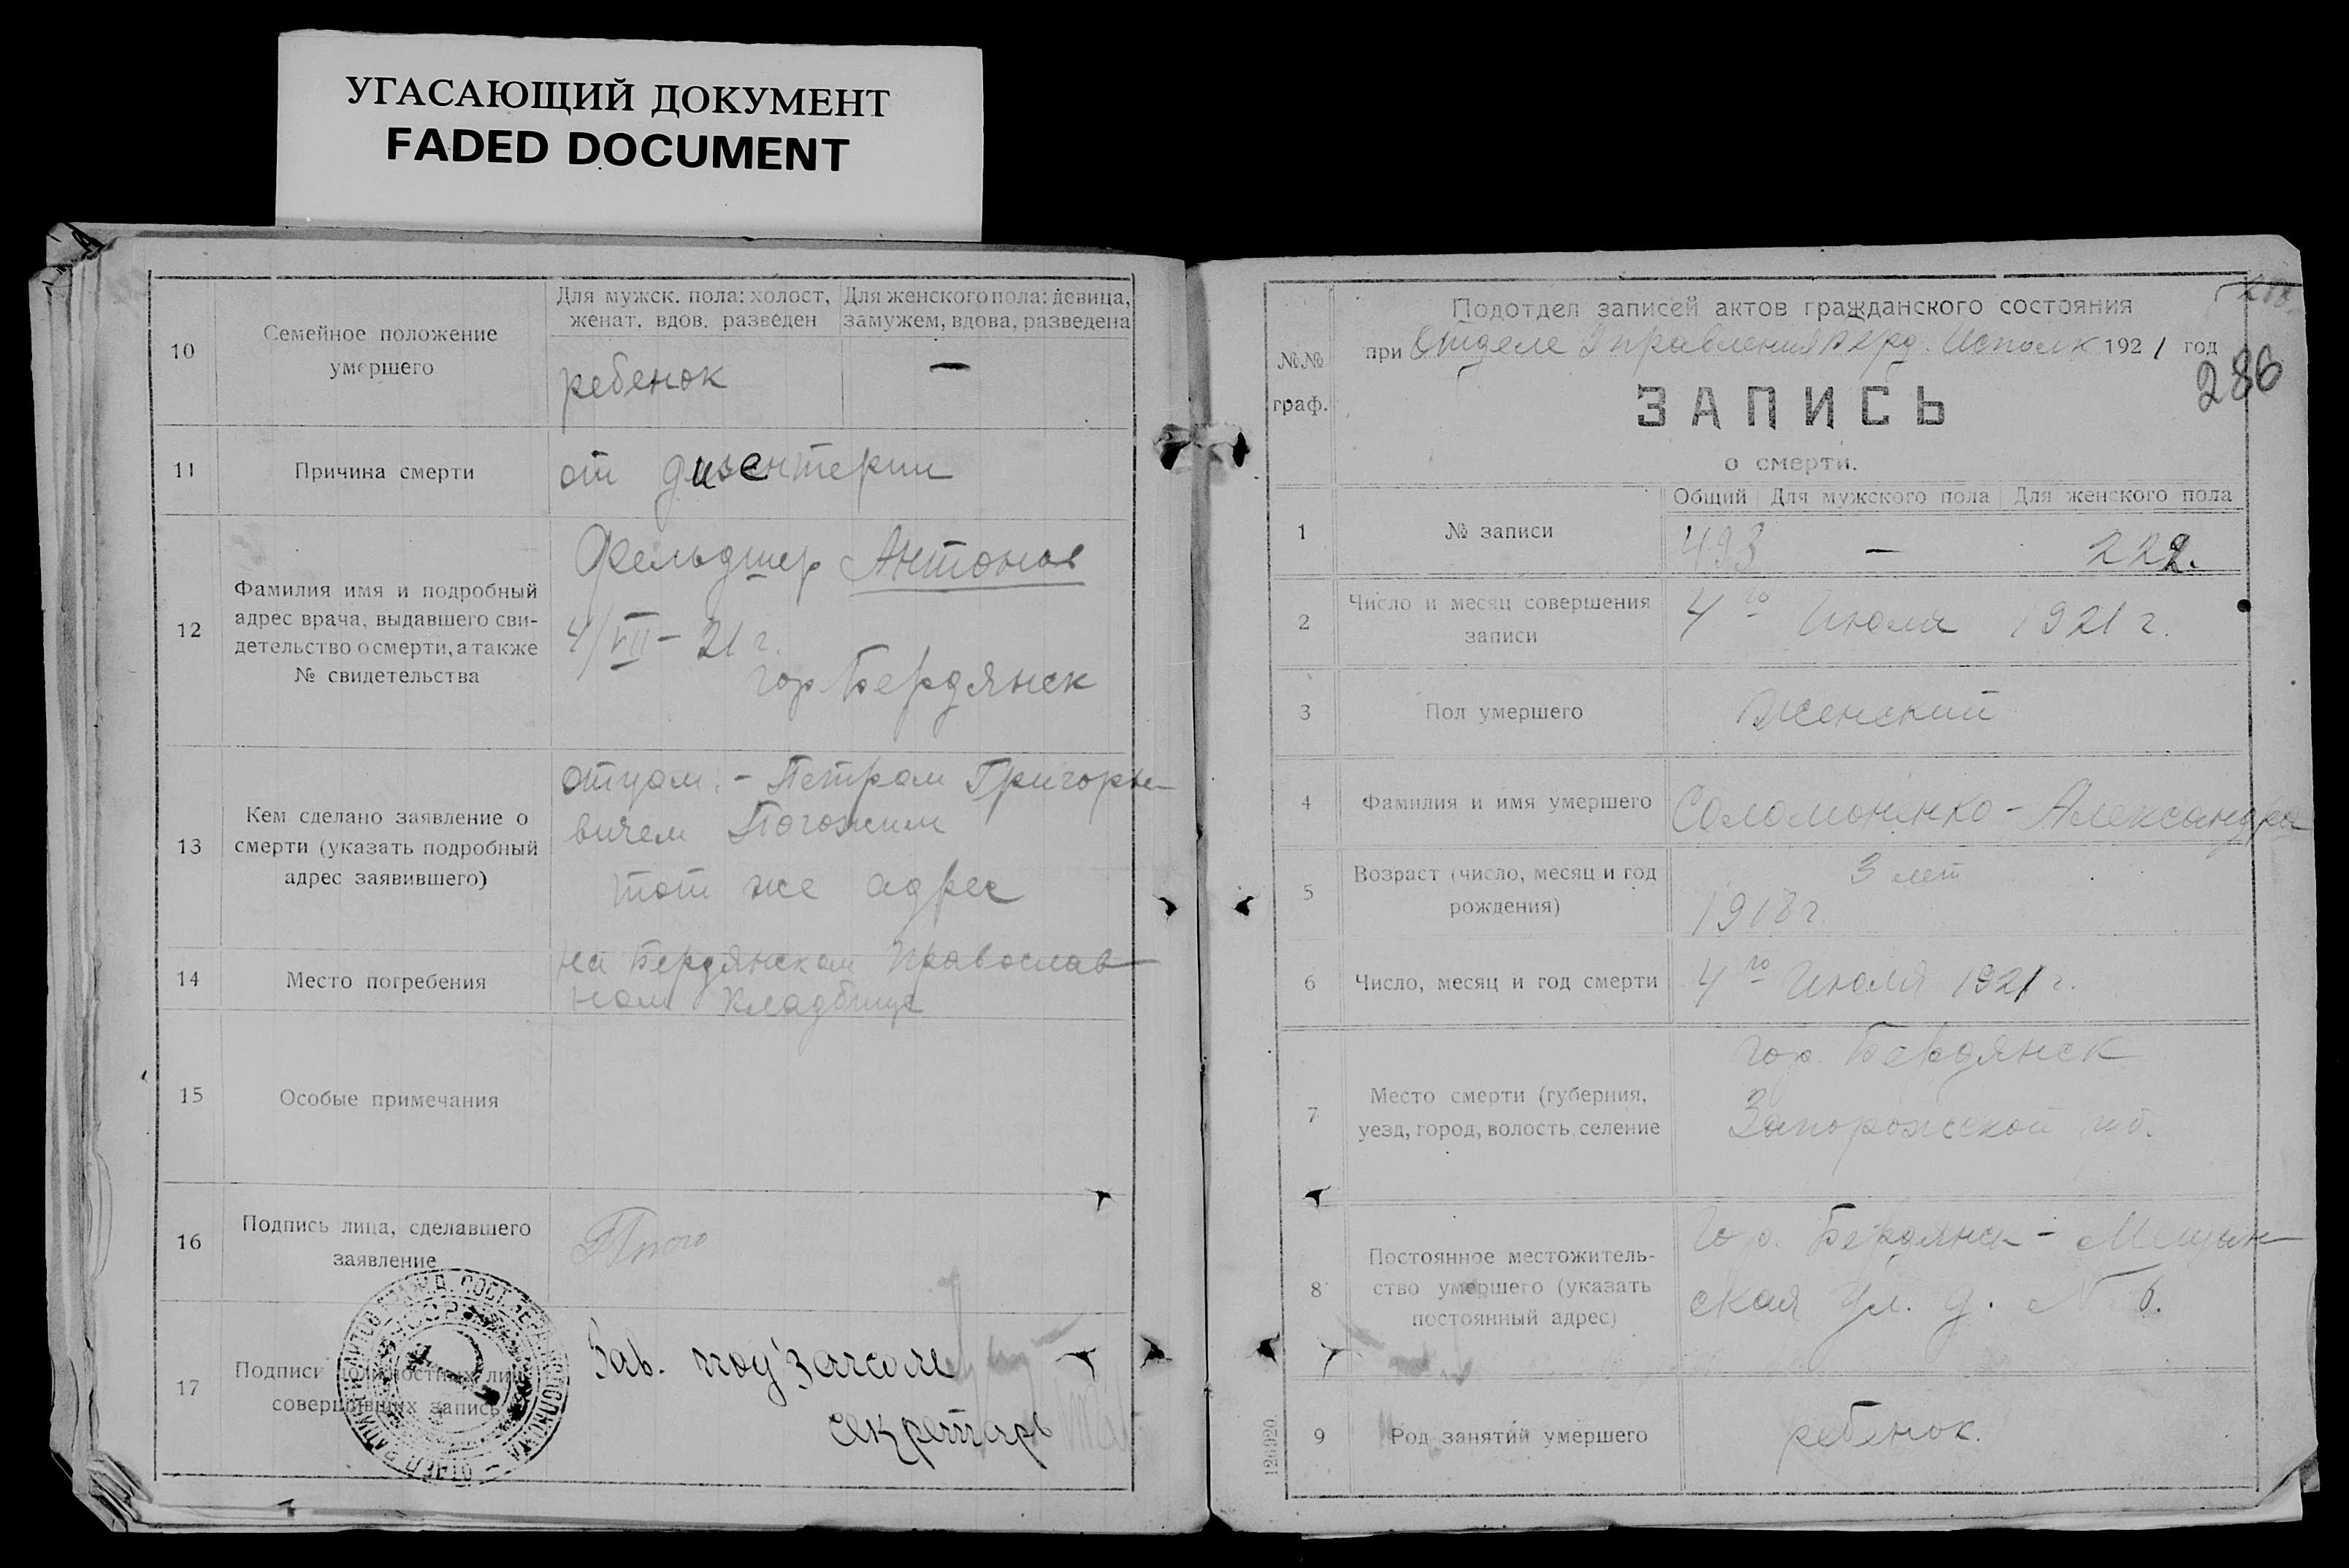 УГАСАЮЩИЙ ДОКУМЕНТ
FADED DOCUMENT
10
Семейное положение
умершего
Для мужск. пола: холост,
женат, вдов. разведен
Для женского пола: девица,
замужем, вдова, разведена
ребенок
—
11
Причина смерти
от дизентерии
12
Фамилия имя и подробный
адрес врача, выдавшего сви-
детельство о смерти, а также
№ свидетельства
Фельдшер Антонов
4/VII – 21 г.
гор. Бердянск
13
Кем сделано заявление о
смерти (указать подробный
адрес заявившего)
отцом. – Петром Григорье-
вичем Погожим
тот же адрес
14
Место погребения
на Бердянском Православ-
ном кладбище
15
Особые примечания
16
Подпись лица, сделавшего
заявление
17
Подписи должностных лиц
совершивших запись
Зав. под'загсом
секретарь
№№
граф.
Подотдел записей актов гражданского состояния
при Отделе Управления Берд. Исполк 1921 год
286
ЗАПИСЬ
о смерти.
1
№ записи
Общий
Для мужского пола
Для женского пола
493
—
222.
2
Число и месяц совершения
записи
4го Июля 1921 г.
3
Пол умершего
Женский
4
Фамилия и имя умершего
Соломоненко – Александра
5
Возраст (число, месяц и год
рождения)
3 лет
1918 г.
6
Число, месяц и год смерти
4го Июля 1921 г.
7
Место смерти (губерния,
уезд, город, волость, селение
гор. Бердянск
Запорожской губ.
8
Постоянное местожитель-
ство умершего (указать
постоянный адрес)
Гор. Бердянск – Мещан-
ская ул. д. № 6.
9
Род занятий умершего
ребенок.
126920